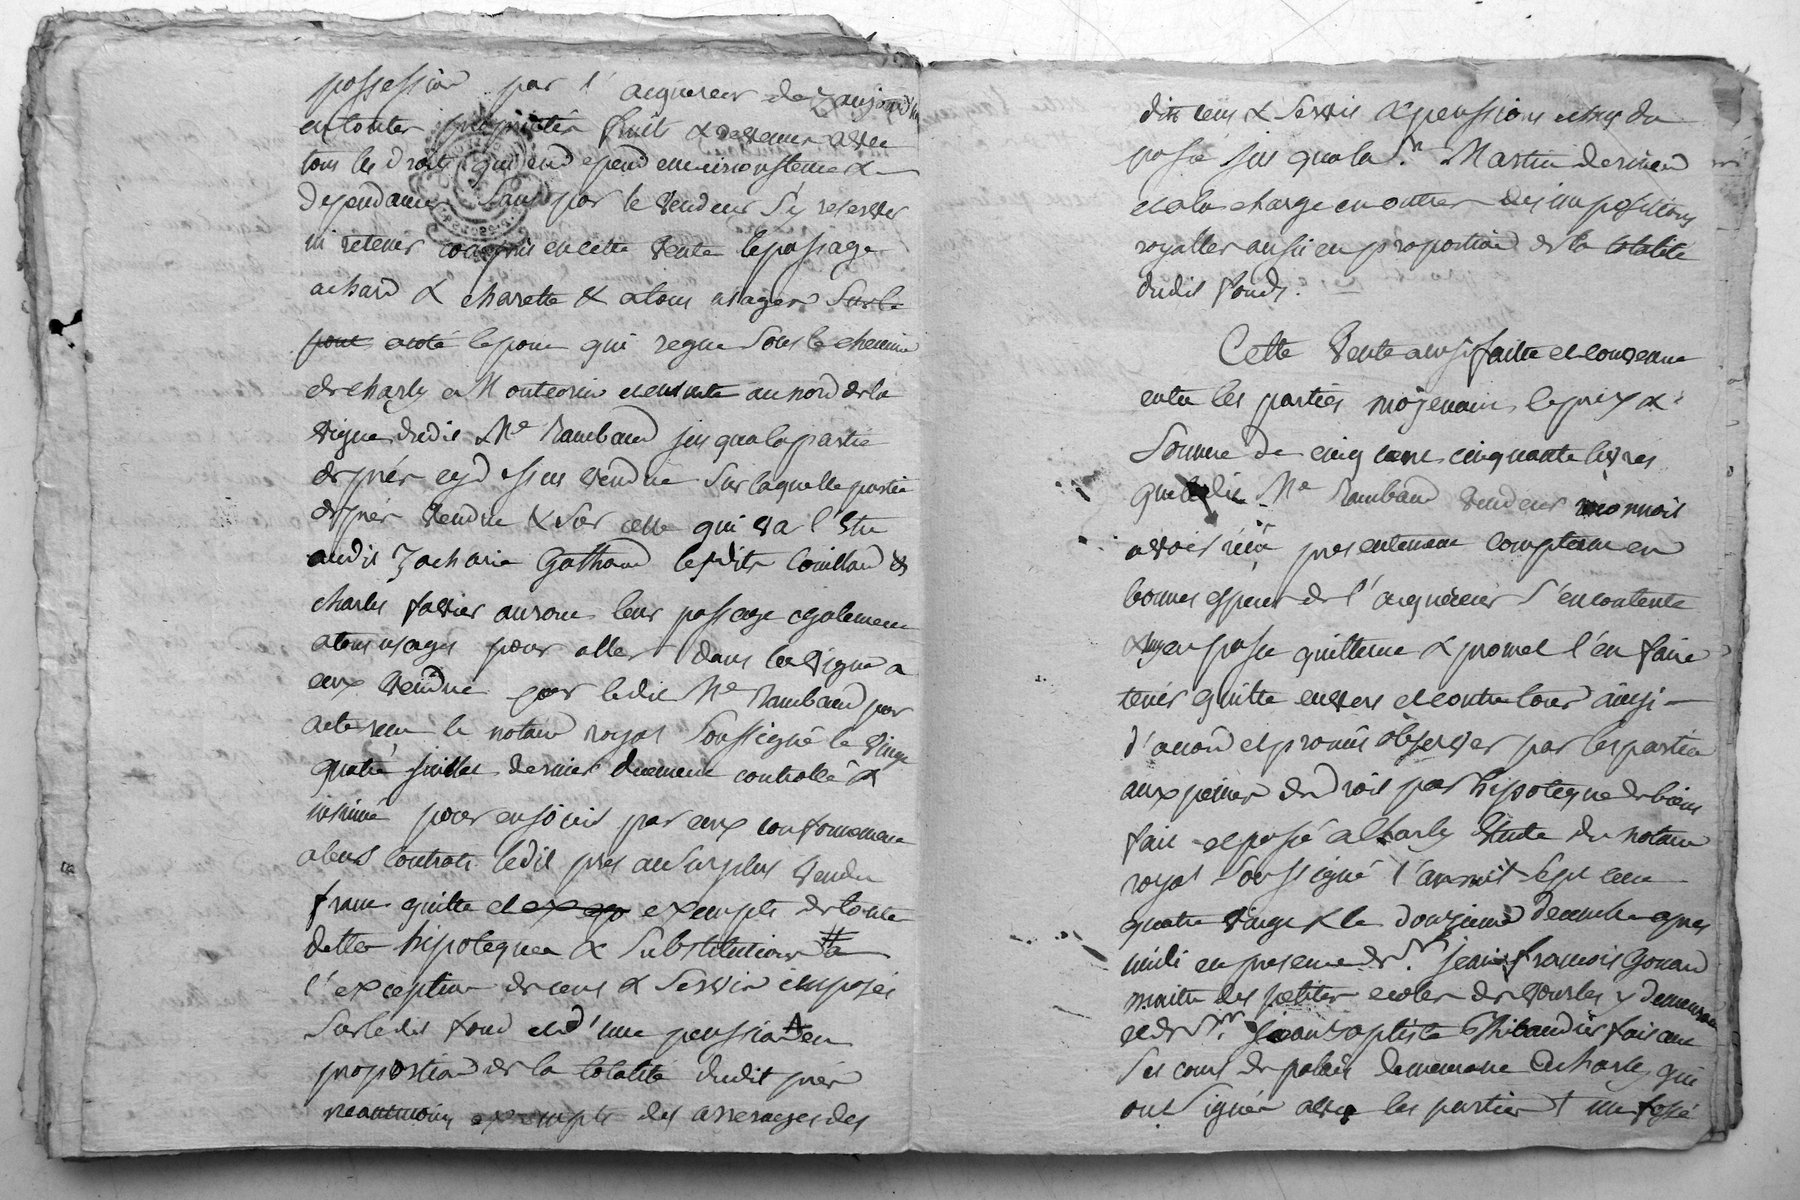 possession par l'aiquereur dez aujourd'hui
en toutes proprietés fruits & revenus avec
tous les droits qui en dependent circonstences &
dependances sans par le vendeur s'y reserver
ni retenir compris en cette vente le passage
a chard & charette & a tous usages sur le
pont a coté le pont qui regne sous le chemin
de charly a Montcorin et ensuite au nord de la
vigne dudit Me Rambaud jusqua la partie
de prés cy dessus vendue sur laquelle partie
de prés vendue & sur celle qui va l'Etre
audit Zacharie Gathaud lesdits Couilloud &
charles favier auront leur passage egalement
a tous usages pour aller dans la vigne a
eux vendue par ledit Me Rambaud par
acte reçu le notaire royal soussigné le vingt
quatre juillet dernier duement controllé &
insinué pour en jouir par eux conformement
a leur contrat ledit prés au surplus vendu
franc quitte et exempts de toutes
dettes hipoteques & substitutions # a
l'exception de cens & servis imposés
sur ledit fond et d'une pension A en
proportion de la totalité dudit prés
neantmoins exempts des arrerages des
dits cens & servis & pensions echus du
passé jusqua la St Martin dernier
et a la charge en outre des impositions
royalles aussi en proportion de la totalité
dudit fonds.
Cette vente ainsi faitte et convenue
entre les parties moyenant le prix &
somme de cinq cent cinquante livres
que ledit Me Rambaud vendeur reconnoit
avoir reçu presentement comptant en
bonnes especes de l'aiquereur s'en contente
& en passe quittence & promet l'en faire
tenir quitte envers et contre tous ainsi
d'accord et promis observer par les parties
aux peines de droit par hipoteque de biens
fait et passé a Charly Etude du notaire
royal soussigné l'an mil sept cent
quatre vingt & le douzieme decembre apres
midi en presence de Sr jean françois Gonard
maitre des petites ecoles de vourles y demeurant
et de Sr jean baptiste Thibaudier faisant
ses cours de palais demeurant a charly qui
ont signés avec les parties / un fossé